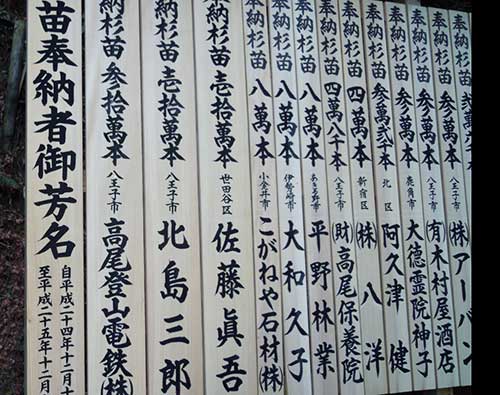 苗奉納者御芳名
自平成二十四年十二月十
至平成二十五年十二月
納杉苗 参拾萬本 八王子市 高尾登山電鉄(株)
納杉苗 壱拾萬本 八王子市 北島三郎
納杉苗 壱拾萬本 世田谷区 佐藤眞吾
奉納杉苗 八萬本 小金井市 こがねや石材(株)
奉納杉苗 八萬本 伊勢崎市 大和久子
奉納杉苗 八萬本 あきる野市 平野林業
奉納杉苗 四萬八千本 八王子市 (財)高尾保養院
奉納杉苗 四萬本 新宿区 (株)八洋
奉納杉苗 参萬弐千本 北区 阿久津健
奉納杉苗 参萬本 鹿角市 大徳霊院神子
奉納杉苗 参萬本 八王子市 (有)木村屋酒店
奉納杉苗 弐萬 八王子市 (株)アーバン